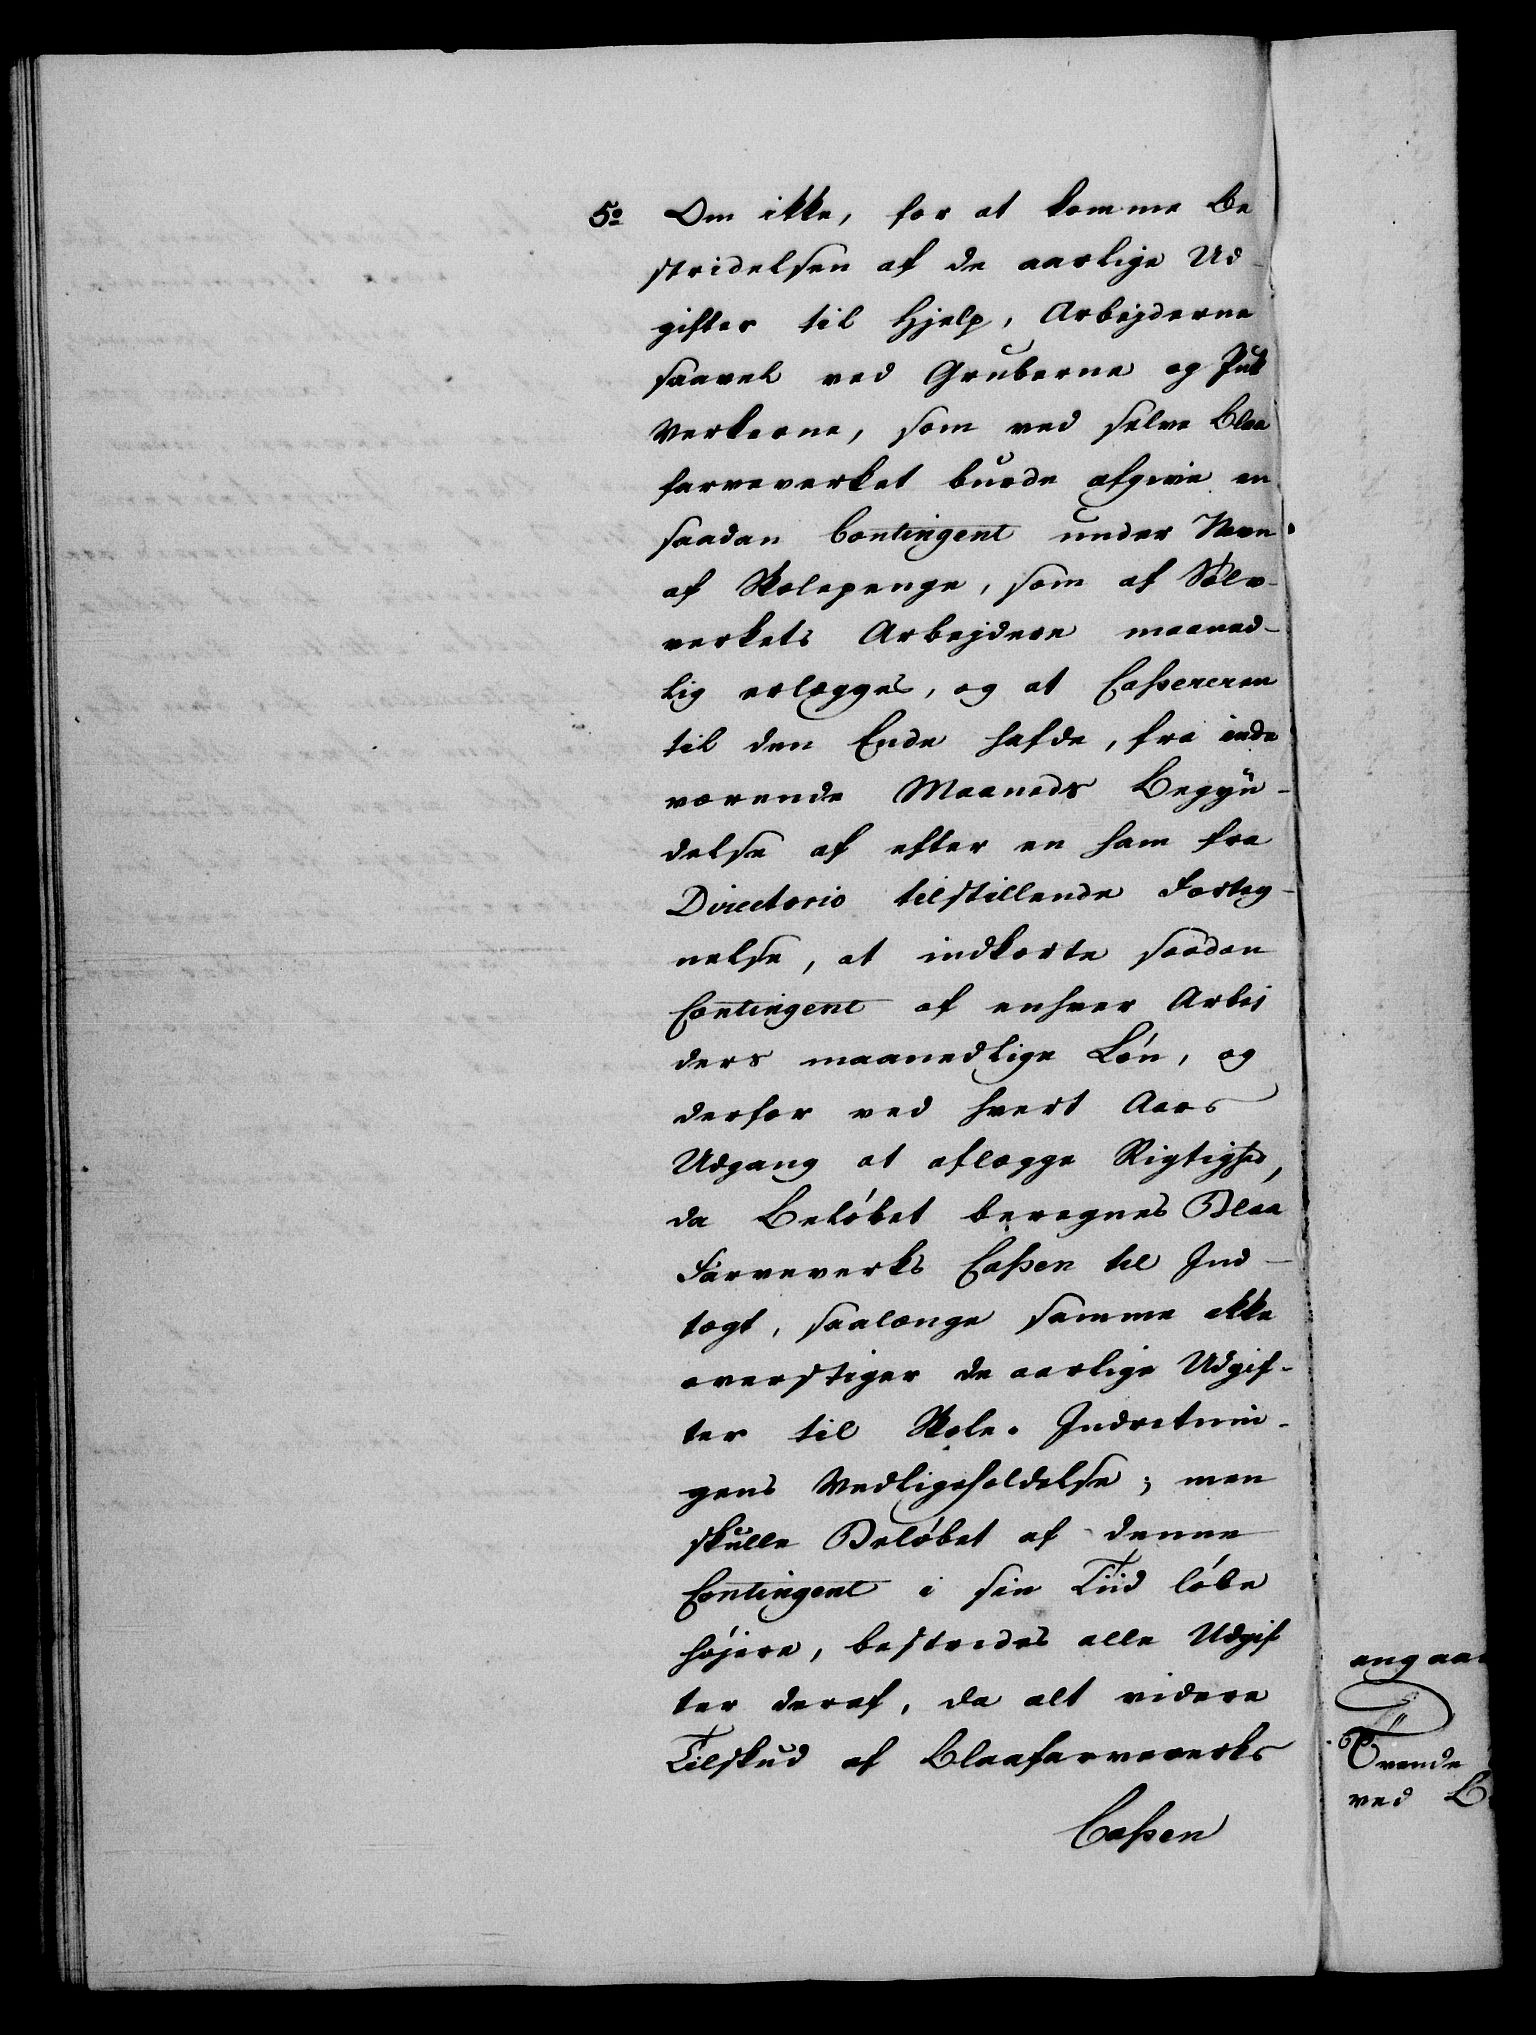 5º Om ikke, for at komme Be
stridelsen af de aarlige Ud-
gifter til Hjelp, Arbejderne
saavel ved Gruberne og Puk
verkerne, som ved selve Blaa
farveverket burde afgive en
saadan Contingent under Navn
af Skolepenge, som af Sølv-
verkets Arbejdere maaned-
lig erlægges, og at Casserer en
til den Ende hafde, fra inde
værende Maaneds Begyn-
delse af efter en ham fra
Directorio tilstillende Forteg-
nelse, at indkorte saadan
Contingent af enhver Arbej
ders maanedlige Løn, og
derfor ved hvert Aars
Udgang at aflægge Rigtighed,
da Beløbet beregnes Blaa
Farveverks Cassen til Ind-
tægt, saalænge samme ikke
overstiger de aarlige Udgif-
ter til Skole-Indretnin-
gens Vedligeholdelse; men
skulle Beløbet af denne
Contingent i sin Tiid løbe
højere, bestrides alle Udgif
ter deraf, da alt videre
Tilskud af Blaafarveverks
Cassen
angaa
ved